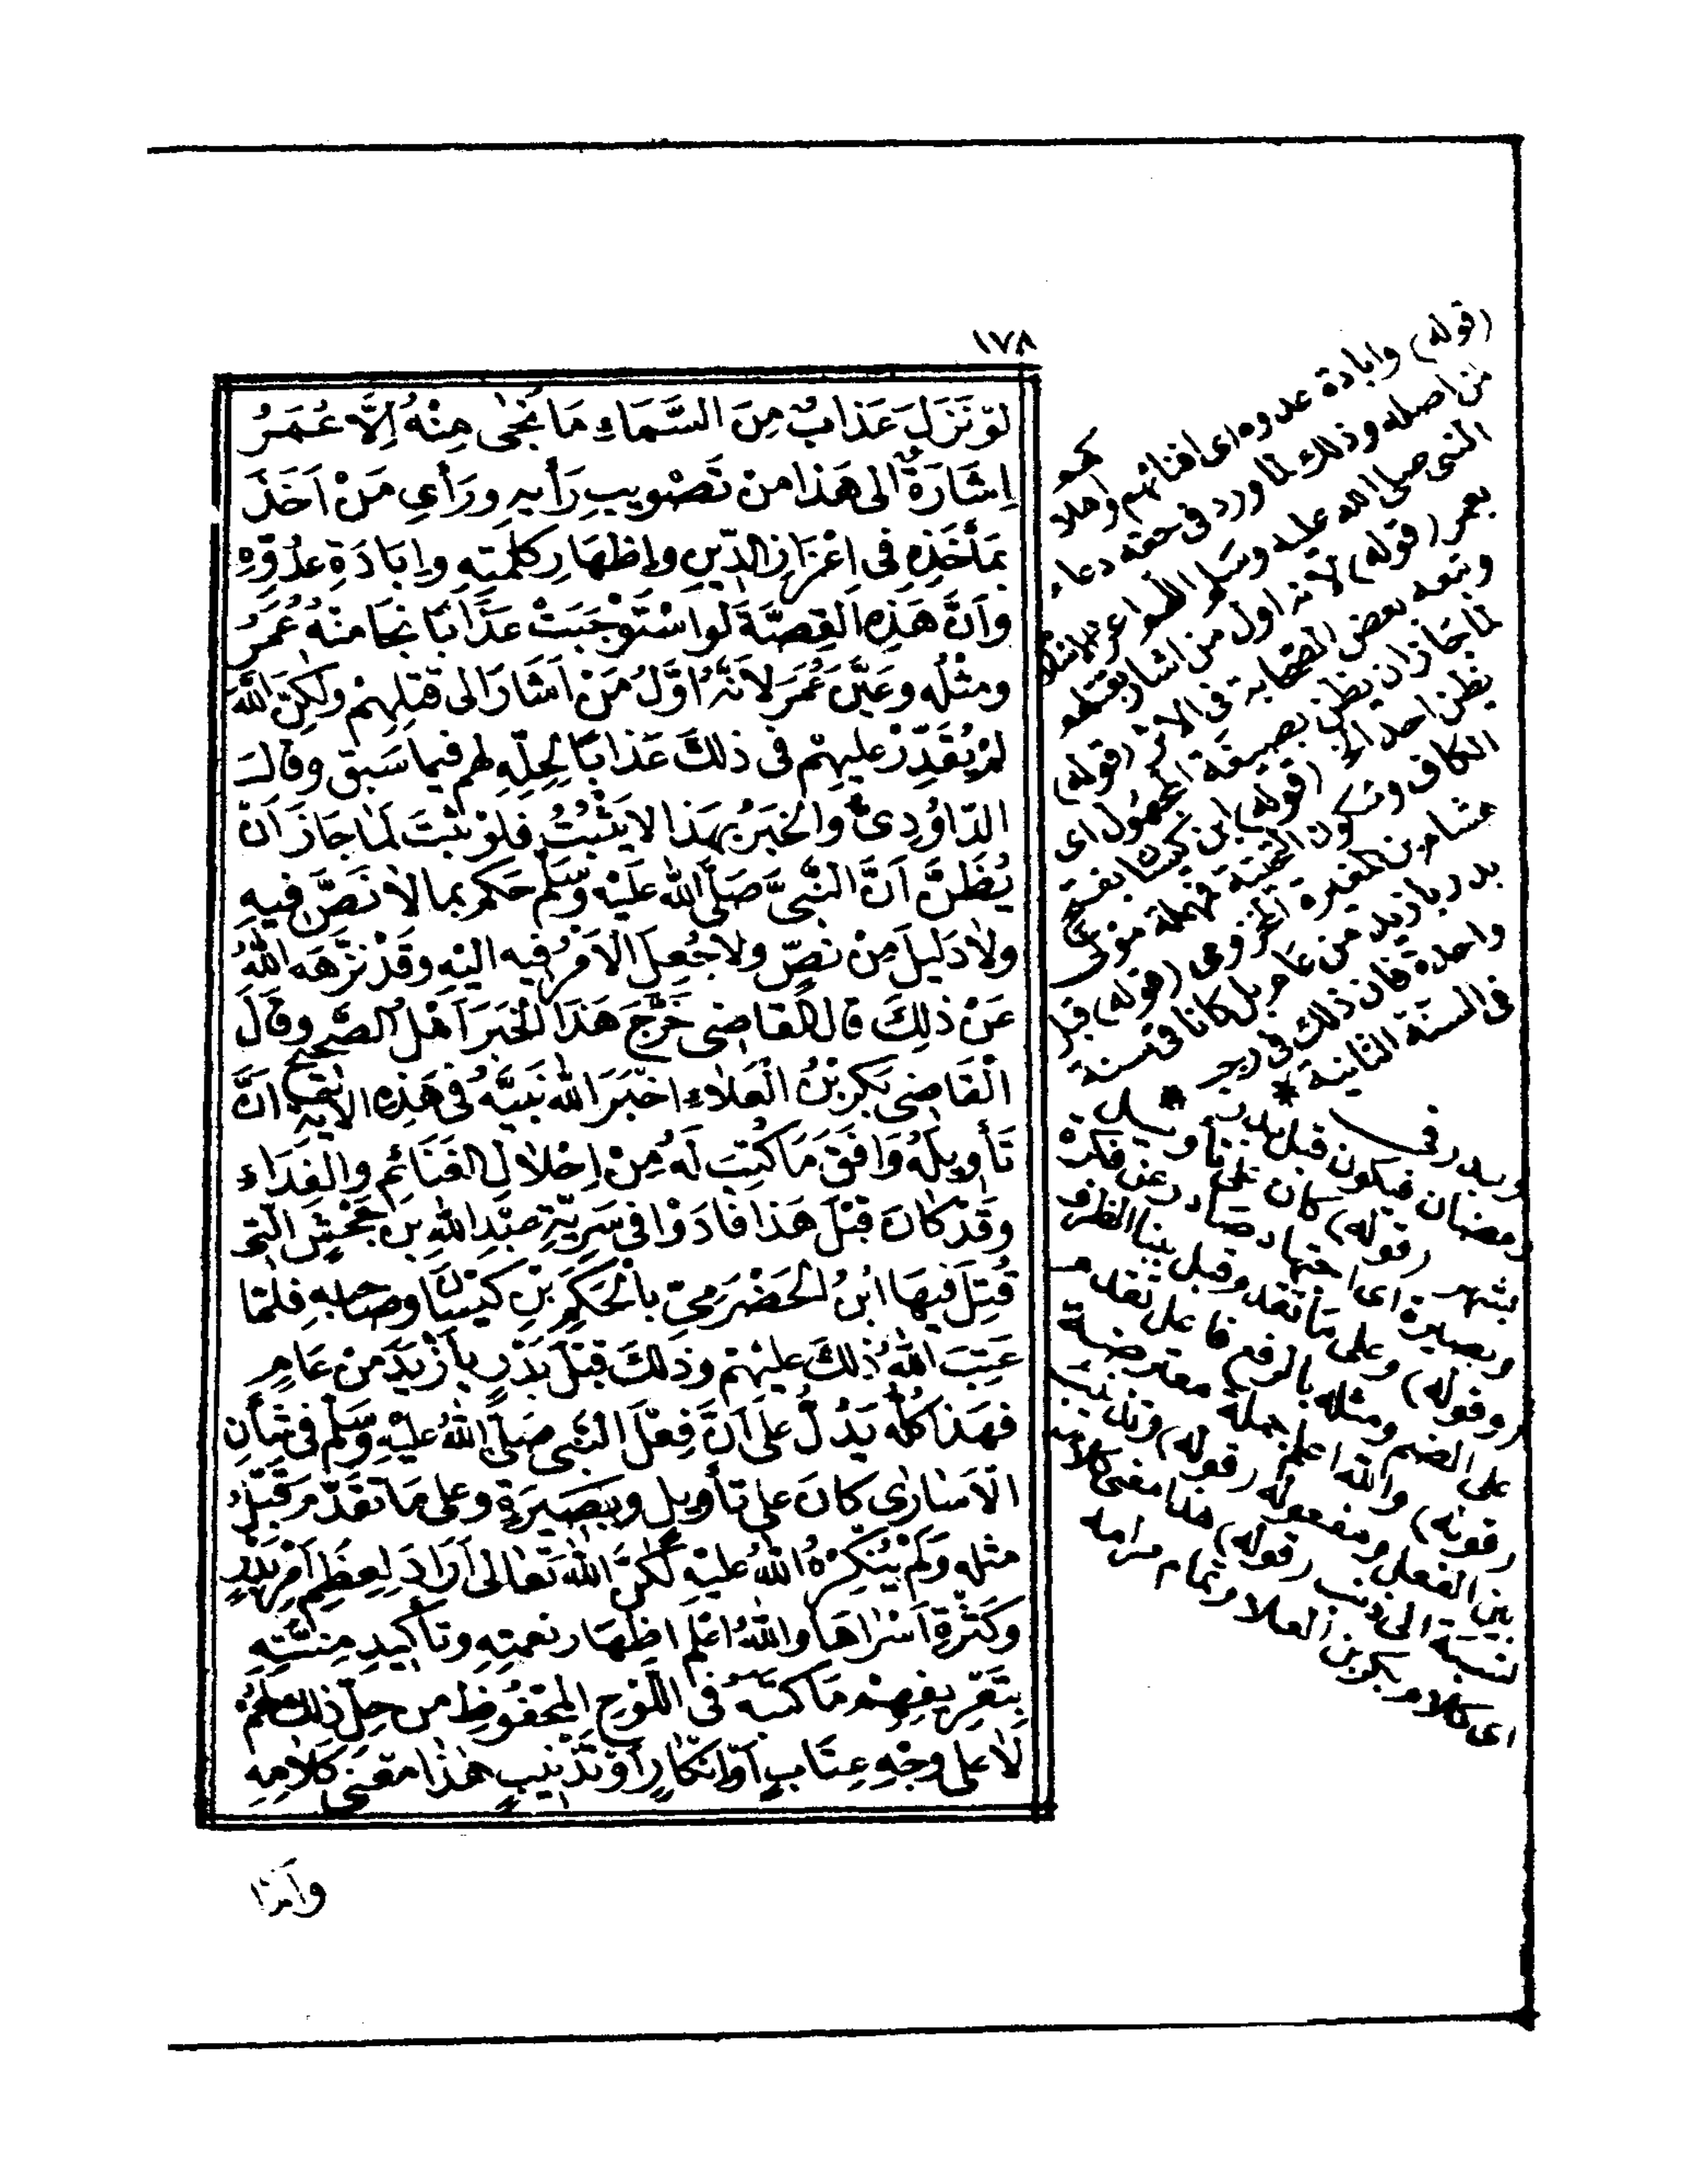 ١٧٨
لَوْ نَزَلَ عَذَابٌ مِنَ السَّمَاءِ مَا نَجٰى مِنْهُ اِلَّا عُمَرُ
اِشَارَةٌ الى هَذَا من تَصْوِيبِ رَأيِهِ ورَأيِ مَنْ اَخَذَ
بمَأْخَذِهِ فى اِعْزَازِ الدِّينِ وإظهَارِ كلمَتِهِ وإبَادَةِ عدُوِّهِ
واَنَّ هَذِهِ القِصَّةَ لَو اسْتَوْجَبَتْ عَذَابًا نَجَا منْهُ عُمَرُ
ومثْلُه وعَيَّنَ عُمَرَ لاَنَّهُ اوَّلُ مَنْ اَشَارَ الى قَتْلِهِمْ ولَكِنَّ اللهَ
لَمْ يُقَدِّرْ عليهِمْ فى ذلكَ عَذابًا لِحِلِّهِ لهم فيما سَبق وقَالَ
الدَّاوُدِىُّ والخبَرُ بهَذا لا يَثْبُتُ فلوْ ثبَتَ لَمَا جَازَ اَنْ
يُظَنَّ اَنَّ النَّبِىَّ صَلَّى الله عَلَيْه وَسَلَّم حَكَم بما لاَ نَصَّ فيهِ
ولاَ دَليلَ مِنْ نصٍّ ولاَ جُعِلَ الاَمْرُ فيه اليْهِ وقَدْ نزَّهَه اللهُ
عَنْ ذلِكَ قالَ القَاضِى خَرَّجَ هَذا الخبَرَ اَهْلُ الصَّحِيحِ وقَالَ
الْقَاضِى بَكرُ بْنُ الْعَلاَءِ اخْبَرَ الله نَبيَّهُ فى هَذِهِ الآيَةِ اَنَّ
تَأوِيلَهُ وَافَقَ مَا كُتِبَ لَهُ مِنْ اِحْلاَلِ الغَنَائِمِ والْفِدَاءِ
وقَدْ كَانَ قبْلَ هَذَا فَادَوْا فى سَرِيَّةِ عبْدِ اللهِ بن جَحْشٍ التى
قُتِلَ فيهَا ابْنُ الحَضْرَمِىِّ بالْحَكَمِ بْنِ كَيْسَانَ وصَاحِبِهِ فلمَّا
عَتَبَ اللهُ ذلكَ عليْهِمْ وذلكَ قبْلَ بَدْرٍ بأَزْيَدَ منْ عَامٍ
فهَذا كُلُّه يَدُلُّ عَلَى اَنَّ فِعْلَ النَّبى صَلَّى اللهُ عَليْهِ وسَلَّم فى شَأنِ
الاَسَارٰى كانَ على تَأويلٍ وبصِيرَةٍ وعلى مَا تقَدَّم قَبْلُ
مثله ولَمْ يُنْكِرْهُ اللهُ عليْهِ لَكنَّ الله تَعَالى اَرَادَ لعِظَمِ اَمْرِ بَدْرٍ
وكَثْرَةِ اَسْرَاهَا واللهُ اعْلم اظهَارَ نعمتِهِ وتأكيدِ مِنَّتِهِ
بتَعْرِيفِهِمْ مَا كَتَبَه فى اللَّوْحِ المحْفُوظِ من حِلِّ ذلكَ لهُمْ
لاَ على وجْهِ عِتَابٍ اَوْ انْكَارٍ أوْ تَذْنِيبٍ هَذا مَعْنى كَلاَمِهِ
وَاَمَّا
(قوله) وابادة عدوه اى افنائهم واهلاكهم
من اصله وذلك لما ورد فى حقه دعاء
النبى صلى الله عليه وسلم اللهم اعز الاسلام
بعمر (قوله) لانه اول من اشار بقتلهم
وتبعه بعض الصحابة فى الاثر (قوله)
لما جاز ان يظن بصيغة المجهول اى
يظن احد (قوله) ابن كيسان بفتح
الكاف وسكون التحتية فمهملة مولى
هشام بن المغيرة المخزومى (قوله) قبل
بدر بازيد من عام بل كانا فى سنة
واحدة فان ذلك فى رجب
فى السنة الثانية *
وبدر فى
رمضان فيكون قبل بدر
بشهر (قوله) كان على تأويل
وبصيرة اى اجتهاد صادر عن فكرة
(وقوله) وعلى ما تقدم وقبل بناء الظرف
على الضم ومثله بالرفع فاعل تقدم
(قوله) والله اعلم جملة معترضة
بين الفعل ومفعوله (قوله) وتذنيب
نسبة الى ذنب (قوله) هذا معنى كلامه
اى كلام بكر بن العلا وتمام مرامه